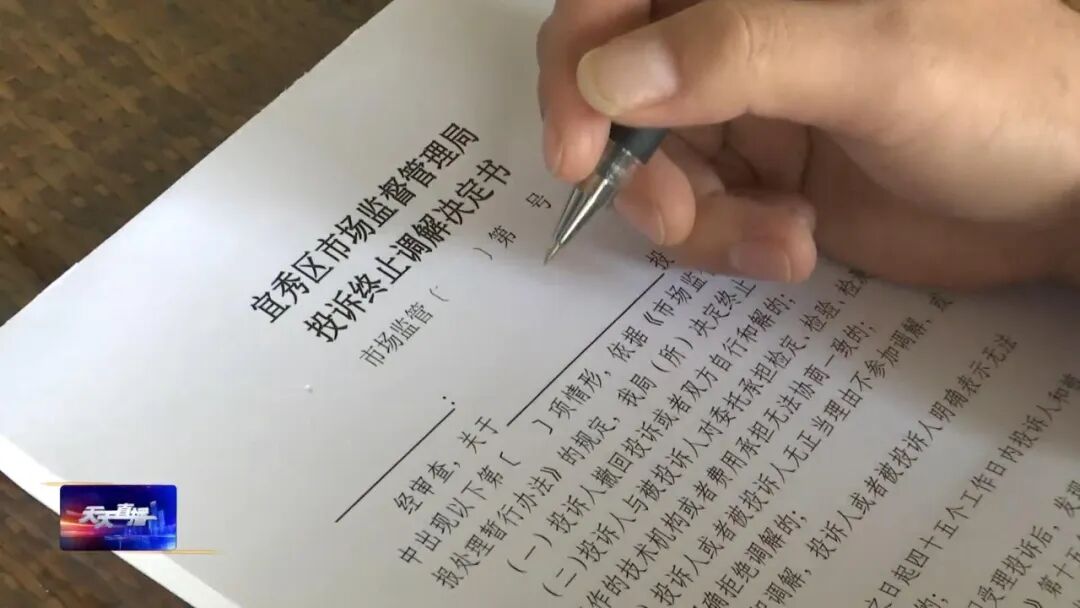 宜秀区市场监督管理局
投诉终止调解决定书
市场监管〔 〕第 号
:
经审查，关于 投
中出现以下第〔 〕项情形，依据《市场监
报处理暂行办法》的规定，我局（所）决定终止
（一）投诉人撤回投诉或者双方自行和解的；
（二）投诉人与被投诉人对委托承担检定、检验、检
作的技术机构或者费用承担无法协商一致的；
投诉人或者被投诉人无正当理由不参加调解，或
确拒绝调解的；
调解，投诉人或者被投诉人明确表示无法
之日起四十五个工作日内投诉人和
受理投诉后，发现
》第十五
天天直播